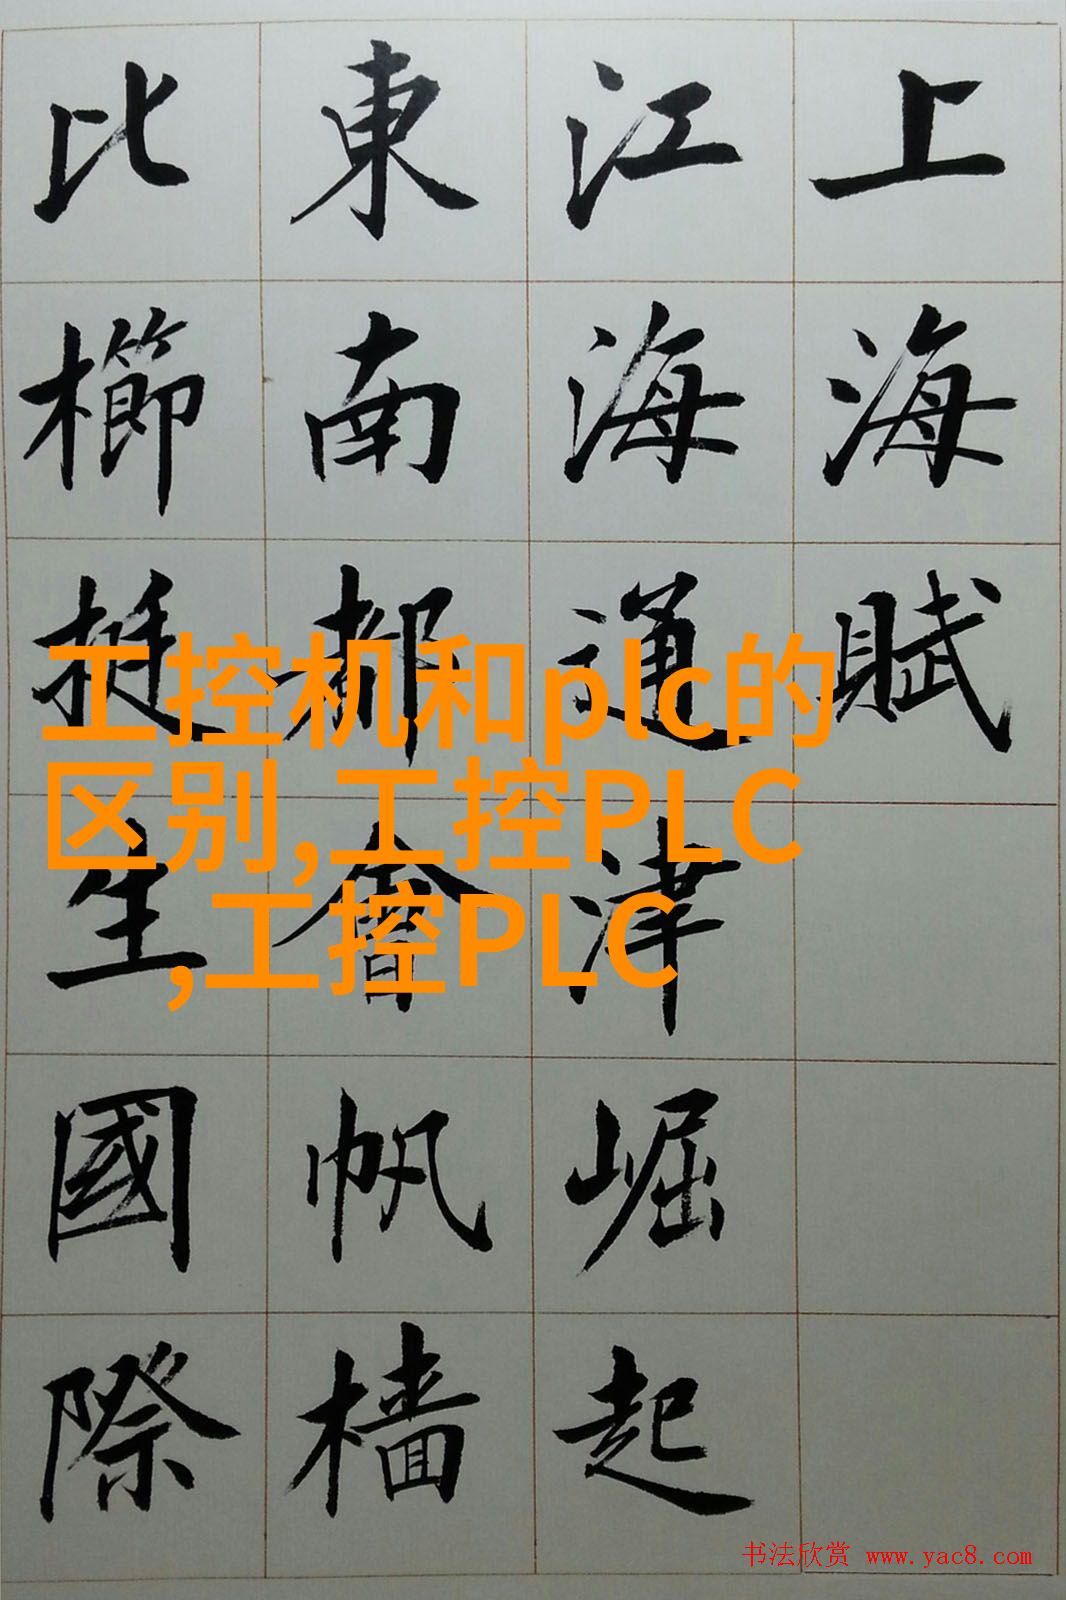 上海賦
江海通津崛起
東南都會帆檣
比櫛挺生國際
工控机和plc的
区别,工控PLC
,工控PLC
书法欣赏 www.yac8.com